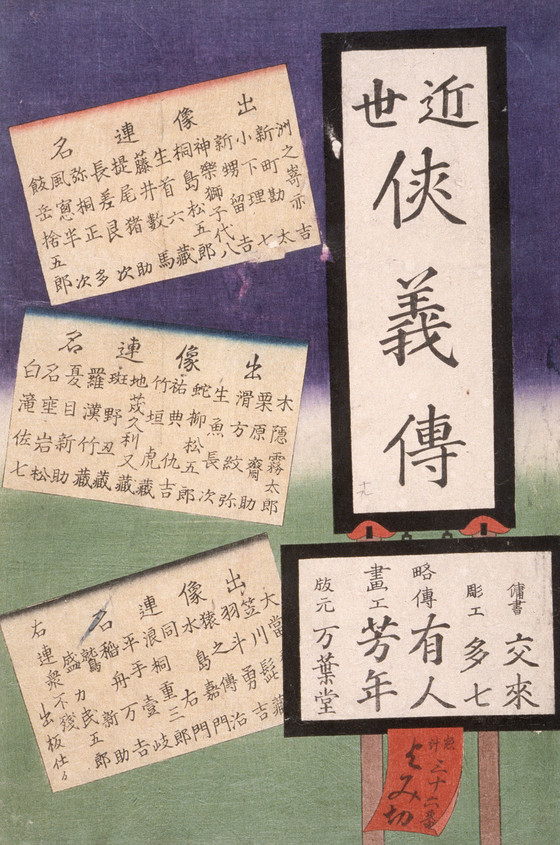 近世
侠義傳
出像連名
洲之嵜亦吉
新町勘太
小下理七
新甥留吉
神樂獅子代八
桐島松五郎
生首六藏
藤井數馬
提尾猪助
長差艮次
弥桐正多
風窓半次
飯岳捨五郎
出像連名
木隠霧太郎
栗原齋助
滑方紋弥
生魚長次
蛇柳松五郎
祐典仇吉
竹垣虎藏
地茂久利又藏
斑野丑藏
羅漢竹藏
憂目新助
名座岩松
白滝佐七
出像連名
大當髭藏
笠川勇吉
羽斗傳治
猿之嘉門
水島右門
同桐重三郎
浪手壹岐
平手万吉
稲舟新助
力民五郎
右連衆不残出板仕
傭書 交來
彫工 多七
略傳 有人
畫工 芳年
版元 万葉堂
惣計三十六番
よみ切